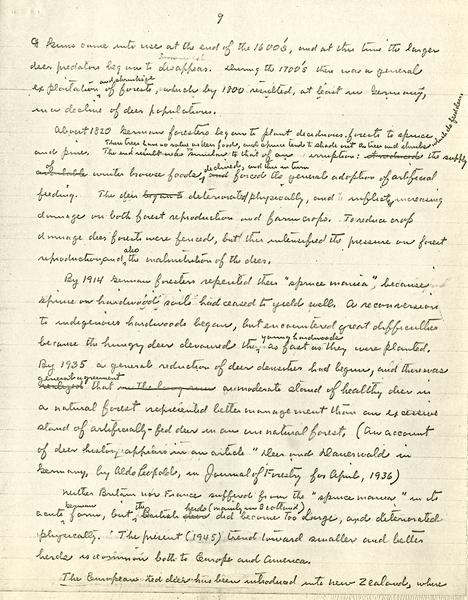 9
of guns came into use at the end of the 1600's, and at this time the larger
deer predators began to disappear. During the 1700's there was a general
exploitation and shrinkage of forests, which by 1800 resulted, at least in Germany,
in a decline of deer populations.
About 1820 German foresters began to plant deciduous forests to spruce
and pine. These trees have no value as deer foods, and spruce tends to shade out the trees and shrubs which do feed deer.
The end result was similar to that of an irruption: the supply
of winter browse foods declined, and this in turn forced the general adoption of artificial
feeding. The deer deteriorated physically, and inflicted increasing
damage on both forest reproduction and farm crops. To reduce crop
damage deer forests were fenced, but this intensified the pressure on forest
reproduction and also the malnutrition of the deer.
By 1914 German foresters repented their "spruce mania," because
spruce on hardwood soils had ceased to yield well. A reconversion
to indigenous hardwoods began, but encountered great difficulties
because the hungry deer devoured the young hardwoods as fast as they were planted.
By 1935 a general reduction of deer densities had begun, and there was
general agreement that a moderate stand of healthy deer in
a natural forest represented better management than an excessive
stand of artificially-fed deer in an unnatural forest. (An account
of deer history appears in an article "Deer and Dauerwald in
Germany, by Aldo Leopold, in Journal of Forestry for April, 1936)
Neither Britain nor France suffered from the "spruce mania" in its
acute German form, but the British herds (mainly in Scotland) did become too large, and deteriorated
physically. The present (1945) trend toward smaller and better
herds is common both to Europe and America.
The European red deer has been introduced into New Zealand, where